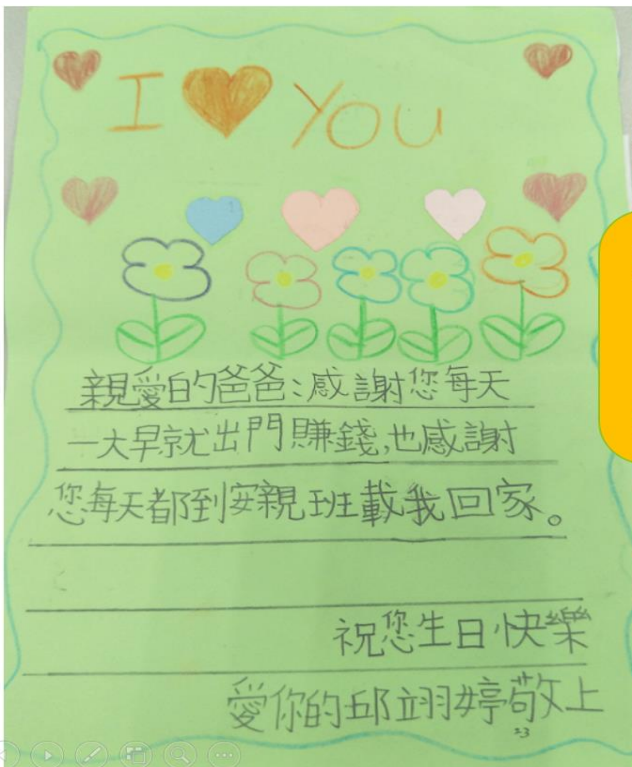 I YOU
親愛的爸爸:感謝您每天
一大早就出門賺錢,也感謝
您每天都到安親班載我回家。
祝您生日快樂
愛你的邱翊婷敬上
23